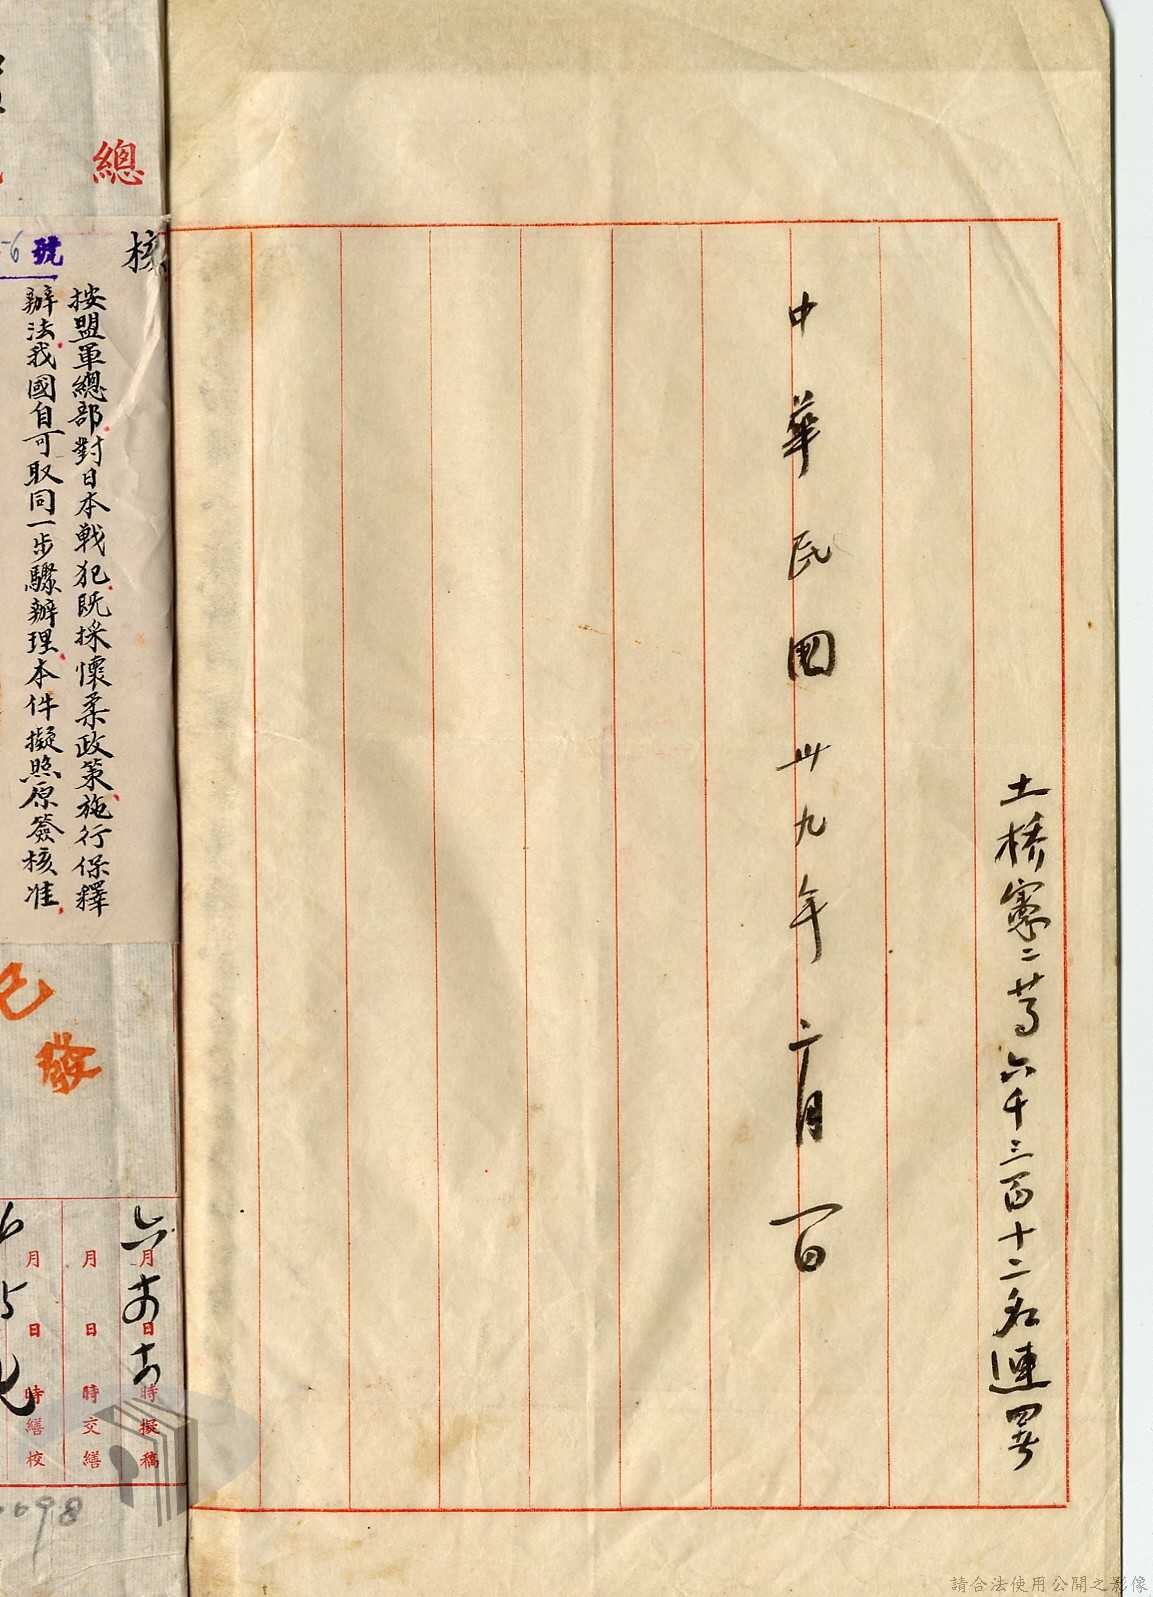 土橋憲二等六千三百十二名連署
中華民國卅九年二月一日
總
核
按盟軍總部對日本戰犯既採懷柔政策施行保釋
辦法我國自可取同一步驟辦理本件擬照原簽核准
6號
已發
六月 日 時擬稿
月 日 時交繕
月 日 時繕校
698
請合法使用公開之影像